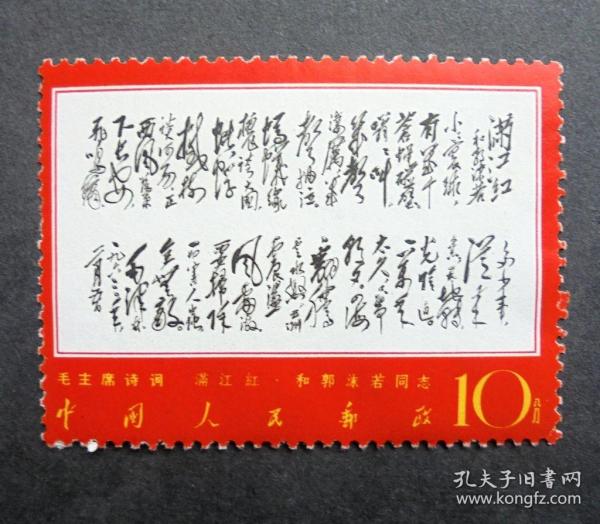 满江红
和郭沫若
小小寰球,
有几个
苍蝇碰壁
嗡嗡叫
几声
凄厉几
声抽泣
蚂蚁缘
槐夸大国
蚍蜉
撼树
谈何易正
西风落葉
下长安
飛鸣镝
多少事,
從来
急天地轉
光陰迫
一万年
太久只争
朝夕四海
翻腾
云水怒五洲
震盪
风雷激
要掃除
一切害人虫
全无敌
毛泽东
一九六三年
二月五日
毛主席诗词 满江红·和郭沫若同志
中国人民邮政 10八分
孔夫子旧书网
www.kongfz.com